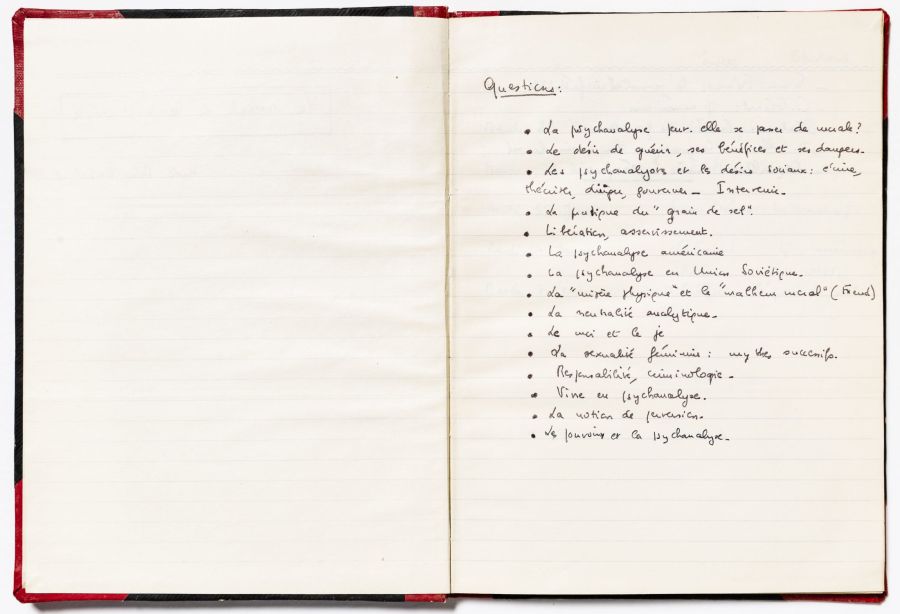 Questions:
• La psychanalyse peut-elle se passer de morale?
• Le désir de guérir, ses bénéfices et ses dangers.
• Les psychanalystes et les désirs sociaux: écrire,
théoriser, diriger, gouverner — Intervenir.
• La pratique du "grain de sel".
• Libération, asservissement.
• La psychanalyse américaine
• La psychanalyse en Union Soviétique.
• La "misère physique" et le "malheur moral" (Freud)
• La neutralité analytique.
• Le moi et le je
• La sexualité féminine: mythes successifs.
• Responsabilité, criminologie.
• Vivre en psychanalyse.
• La notion de perversion.
• Les pouvoirs et la psychanalyse.